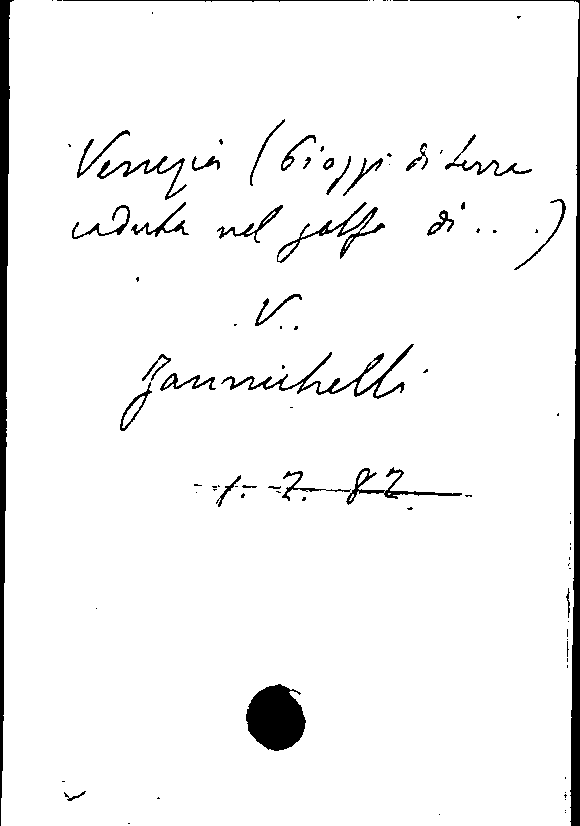 Venezia (Pioggi di terra
caduta nel golfo di ...)
V.
Zannichelli
1. 7. 82.